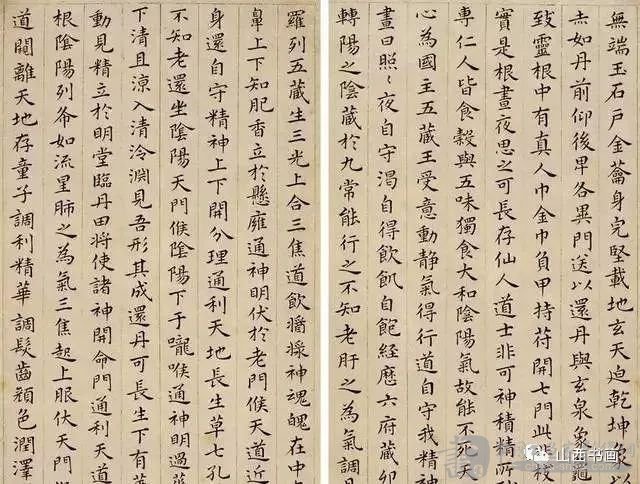 無端玉石戶金蘥身完堅載地玄天迫乾坤負以
赤如丹前仰後卑各異門送以還丹與玄泉象龜
致靈根中有真人巾金巾負甲持苻開七門此非枝
實是根晝夜思之可長存仙人道士非可神積精所
專仁人皆食穀與五味獨食大和陰陽氣故能不死天
心為國主五藏王受意動靜氣得行道自守我精神
晝日照〻夜自守渴自得飲飢自飽經歷六府藏卯
轉陽之陰藏於九常能行之不知老肝之為氣調
羅列五藏生三光上合三焦道飲醬神魂魄在中
鼻上下知肥香立於懸雍通神明伏於老門候天道近
身還自守精神上下開分理通利天地長生草七孔
不知老還坐陰陽天門候陰陽下于嚨喉通神明過
下清且涼入清泠淵見吾形其成還丹可長生下有
動見精立於明堂臨丹田將使諸神開命門通利天道
根陰陽列布如流星肺之為氣三焦起上服伏天門
道闚離天地存童子調利精華調髮齒顏色潤澤
山西书画